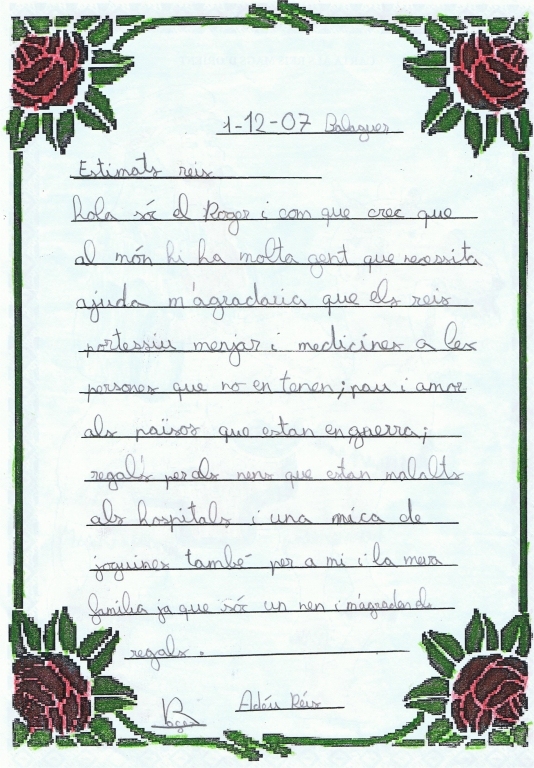 1-12-07 Balaguer
Estimats reis
hola sóc el Roger i com que crec que
al món hi ha molta gent que necessita
ajuda m'agradaria que els reis
portessiu menjar i medicines a les
persones que no en tenen; pau i amor
als països que estan en guerra;
regals per als nens que estan malalts
als hospitals i una mica de
joguines també per a mi i la meva
família ja que sóc un nen i m'agraden els
regals.
Adéu Reis
Roger